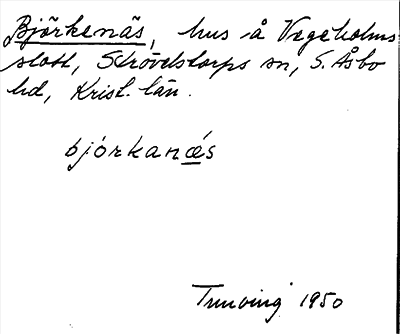 Björkenäs, hus å Vegeholms
slott, Strövelstorps sn, S. Åsbo
hd, Krist. län.
bjórkanæ̀s
1950